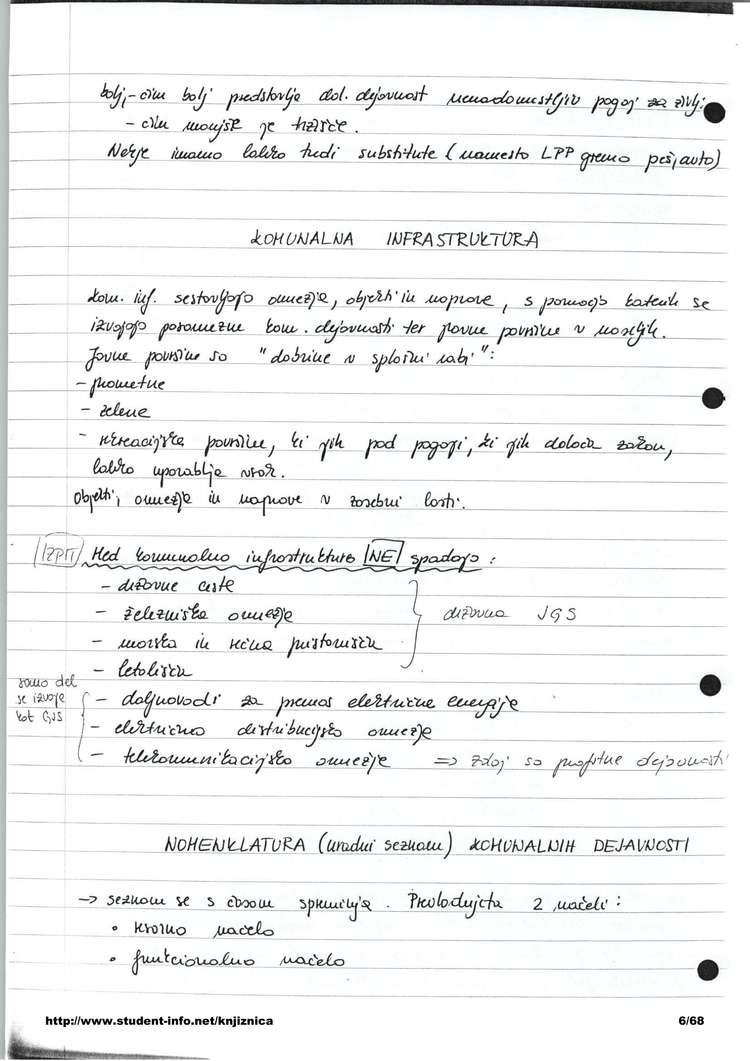 bolj, - čim bolj predstavlja dol. dejavnost nenadomestljiv pogoj za življ.
- čim manjše je tržišče.
Včasih imamo lahko tudi substitute (namesto LPP gremo peš, avto)
KOMUNALNA INFRASTRUKTURA
Kom. inf. sestavljajo omrežje, objekti in naprave, s pomočjo katerih se
izvajajo posamezne kom. dejavnosti ter javne površine v naseljih.
Javne površine so "dobrine v splošni rabi":
- prometne
- zelene
- rekreacijske površine, ki jih pod pogoji, ki jih določa zakon,
lahko uporablja vsak.
Objekti, omrežje in naprave v zasebni lasti.
IZPIT Med komunalno infrastrukturo NE spadajo:
- državne ceste
- železniško omrežje
- morska in rečna pristanišča
- letališča
državna JGS
samo del
se izvaja
kot GJS
- daljnovodi za prenos električne energije
- električno distribucijsko omrežje
- telekomunikacijsko omrežje => zdaj so profitne dejavnosti
NOMENKLATURA (uradni seznam) KOMUNALNIH DEJAVNOSTI
-> seznam se s časom spreminja. Prevladujeta 2 načeli:
• krovno načelo
• funkcionalno načelo
http://www.student-info.net/knjiznica 6/68